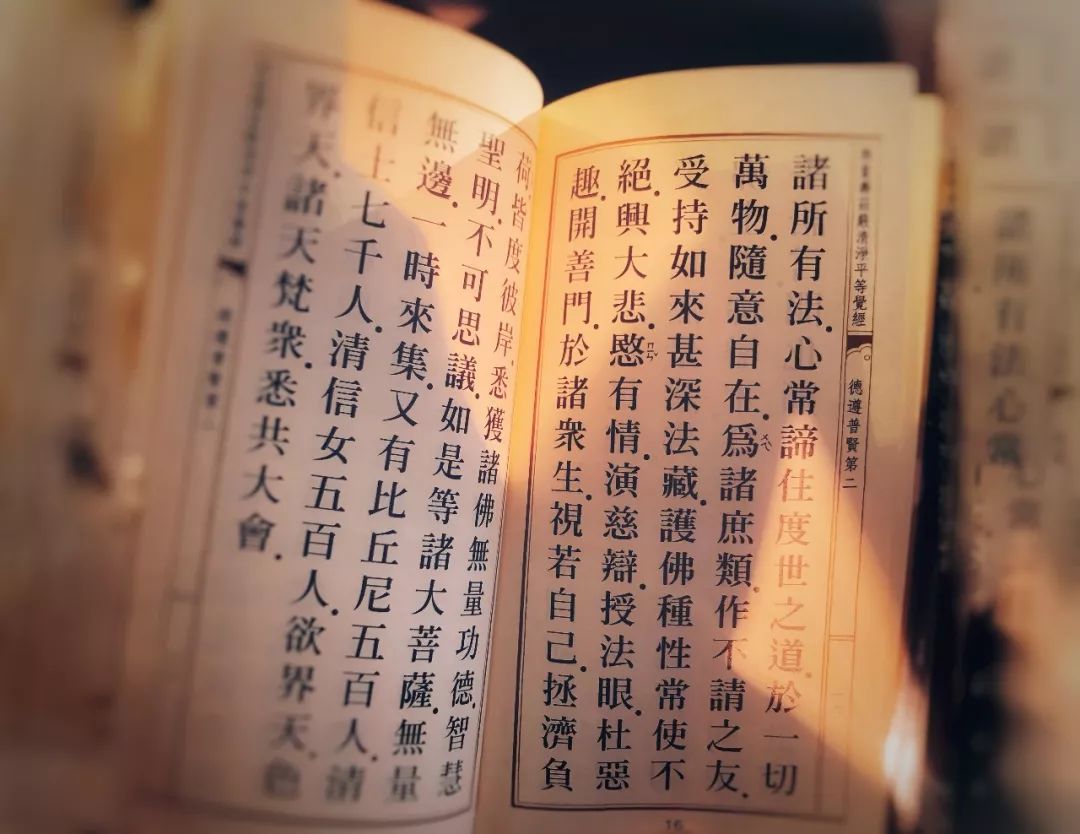 無量壽莊嚴清淨平等覺經
德遵普賢第二
諸所有法.心常諦住度世之道.於一切
萬物.隨意自在.爲諸庶類.作不請之友.
受持如來甚深法藏.護佛種性常使不
絕.興大悲.愍有情.演慈辯.授法眼.杜惡
趣.開善門.於諸衆生.視若自己.拯濟負
16
荷.皆度彼岸.悉獲諸佛無量功德.智慧
聖明.不可思議.如是等諸大菩薩.無量
無邊.一時來集.又有比丘尼五百人.清
信士七千人.清信女五百人.欲界天.色
界天.諸天梵衆.悉共大會.